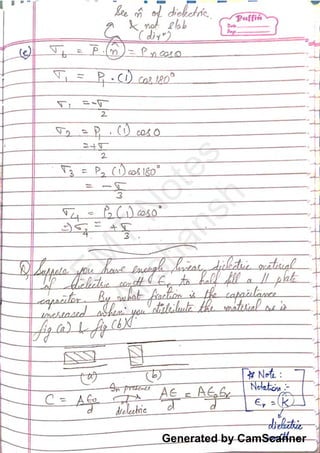 See n̂ of dielectric
& not slab
(dirⁿ)
Puffin
Date
Page
(c) σb = P̄.n̂ = Pn cos0
σ1 = P1 . (1) cos 180°
σ1 = -σ/2
σ2 = P1 . (1) cos 0
= +σ/2
σ3 = P2 (1) cos 180°
= -σ/3
σ4 = P2 (1) cos0°
⇒ σ4 = +σ/3
Q) Suppose you have enough linear dielectric material
of dielectric constt Er to half fill a || plate
capacitor. By what fraction is the capacitance
increased when you distribute the material as in
fig (a) & fig (b)?
(a) (b)
C = Aε0/d In presence dielectric → Aε/d = Aε0εr/d
* Note :
Notation :-
εr = k
dielectric
Generated by CamScanner